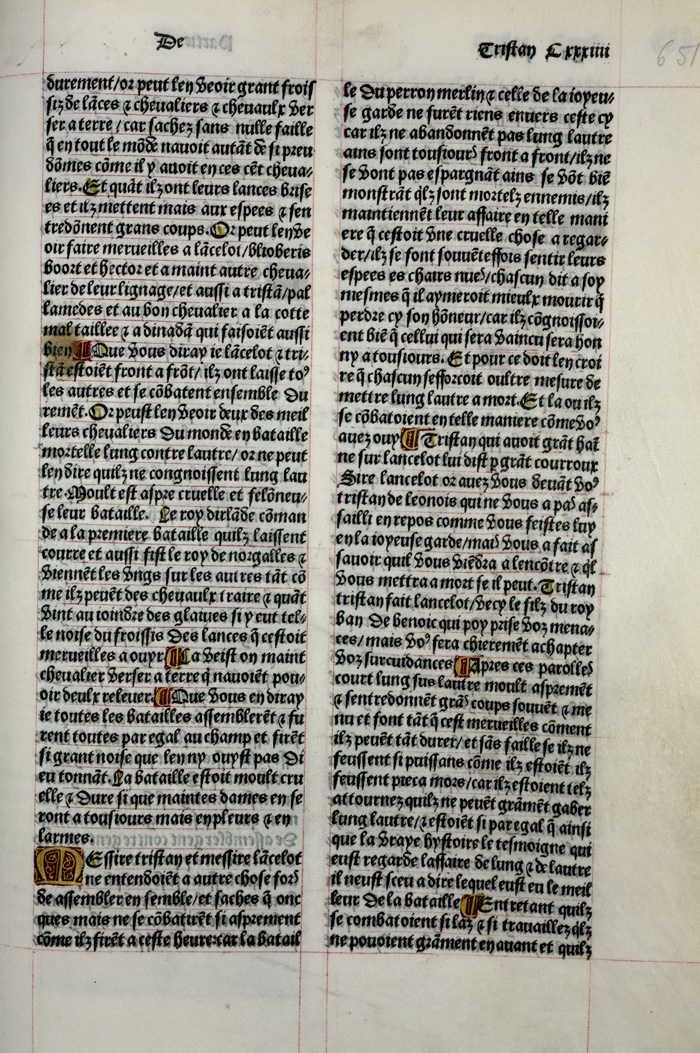 De
Tristan Cxxxiiii
651
durement/or peut len veoir grant frois
siz de lāces ⁊ chevaliers ⁊ chevaulx ver
ser a terre/car sachez sans nulle faille
q̄ en tout le mōde navoit autāt de si preu
dōmes cōme il y avoit en ces cēt cheva⸗
liers. Et quāt ilz ont leurs lances brise
es et ilz mettent mais aux espees ⁊ sen
tredōnent grans coups. Or peut len ve
oir faire merveilles a lācelot/blioberis
boort et hector et a maint autre cheva⸗
lier de leur lignage/et aussi a tristā/pal
lamedes et au bon chevalier a la cotte
mal taillee ⁊ a dinadā qui faisoiēt aussi
bien ¶ Que vous diray ie lācelot ⁊ tri⸗
stā estoiēt front a frōt/ilz ont laisse toꝰ
les autres et se cōbatent ensemble du
remēt. Or peust len veoir deux des meil
leurs chevaliers du monde en bataille
mortelle lung contre lautre/or ne peut
len dire quilz ne congnoissent lung lau
tre. Moult est aspre cruelle et felōneu⸗
se leur bataille. Le roy dirlāde cōman
de a la premiere bataille quilz laissent
courre et aussi fist le roy de norgalles ⁊
viennēt les vngs sur les autres tāt cō
me ilz peuēt des chevaulx traire ⁊ quāt
vint au ioindre des glaives si y eut tel⸗
le noise du froissis des lances q̄ cestoit
merveilles a ouyr ¶ La veist on maint
chevalier verser a terre q̄ navoiēt pou⸗
oir deulx relever. ¶ Que vous en diray
ie toutes les batailles assemblerēt ⁊ fu
rent toutes par egal au champ et firēt
si grant noise que len ny ouyst pas di
eu tonnāt. La bataille estoit moult cru
elle ⁊ dure si que maintes dames en se
ront a tousiours mais en pleurs ⁊ en
larmes.
MEssire tristan et messire lācelot
ne entendoiēt a autre chose fors
de assembler en semble/et saches q̄ onc
ques mais ne se cōbatirēt si asprement
cōme ilz firēt a ceste heure: car la batail
le du perron merlin ⁊ celle de la ioyeu⸗
se garde ne furēt riens envers ceste cy
car ilz ne abandonnēt pas lung lautre
ains sont tousiours front a front/ilz ne
se vont pas espargnāt ains se vōt biē
monstrāt q̄lz sont mortelz ennemis/ilz
maintiennēt leur affaire en telle mani
ere q̄ cestoit vne cruelle chose a regar⸗
der/ilz se font souvēteffois sentir leurs
espees es chairs nues/chascun dit a soy
mesmes q̄ il aymeroit mieulx mourir q̄
perdre cy son hōneur/car ilz cōgnoissoi⸗
ent biē q̄ cellui qui sera vaincu sera hon
ny a tousiours. Et pour ce doit len croi
re q̄ chascun sefforcoit oultre mesure de
mettre lung lautre a mort. Et la ou ilz
se cōbatoient en telle maniere cōme voꝰ
avez ouy ¶ Tristan qui avoit grāt hai
ne sur lancelot lui dist ꝑ grāt courroux
Sire lancelot or avez vous devāt voꝰ
tristan de leonois qui ne vous a pas as⸗
sailli en repos comme vous feistes luy
en la ioyeuse garde/mais vous a fait as
savoir quil vous viēdra a lencōtre ⁊ q̄l
vous mettra a mort se il peut. Tristan
tristan fait lancelot/vecy le filz du roy
ban de benoic qui poy prise voz mena⸗
ces/mais voꝰ sera chieremēt achapter
voz surcuidances ¶ Apres ces parolles
court lung sus lautre moult aspremēt
⁊ sentredonnēt grās coups souvēt ⁊ me
nu et font tāt q̄ cest merveilles cōment
ilz peuēt tāt durer/et sās faille se ilz ne
feussent si puissans cōme ilz estoiēt ilz
feussent pieca mors/car ilz estoient telz
attournez quilz ne peuēt grāmēt gaber
lung lautre/⁊ estoiēt si par egal q̄ ainsi
que la vraye hystoire le tesmoigne qui
eust regarde laffaire de lung ⁊ de lautre
il neust sceu a dire lequel eust eu le meil
leur de la bataille ¶ Entretant quilz
se combatoient si laz ⁊ si travaillez q̄lz
ne povoient grāment en avant et quilz